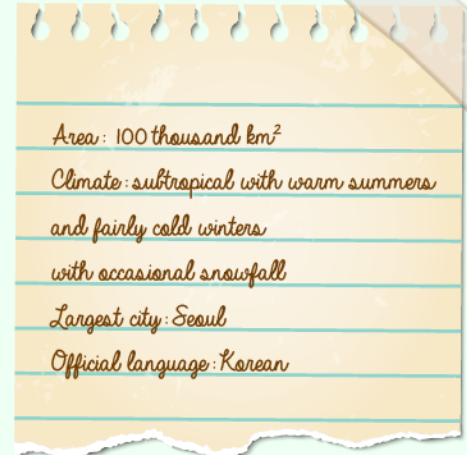 Area: 100 thousand km²
Climate: subtropical with warm summers
and fairly cold winters
with occasional snowfall
Largest city: Seoul
Official language: Korean